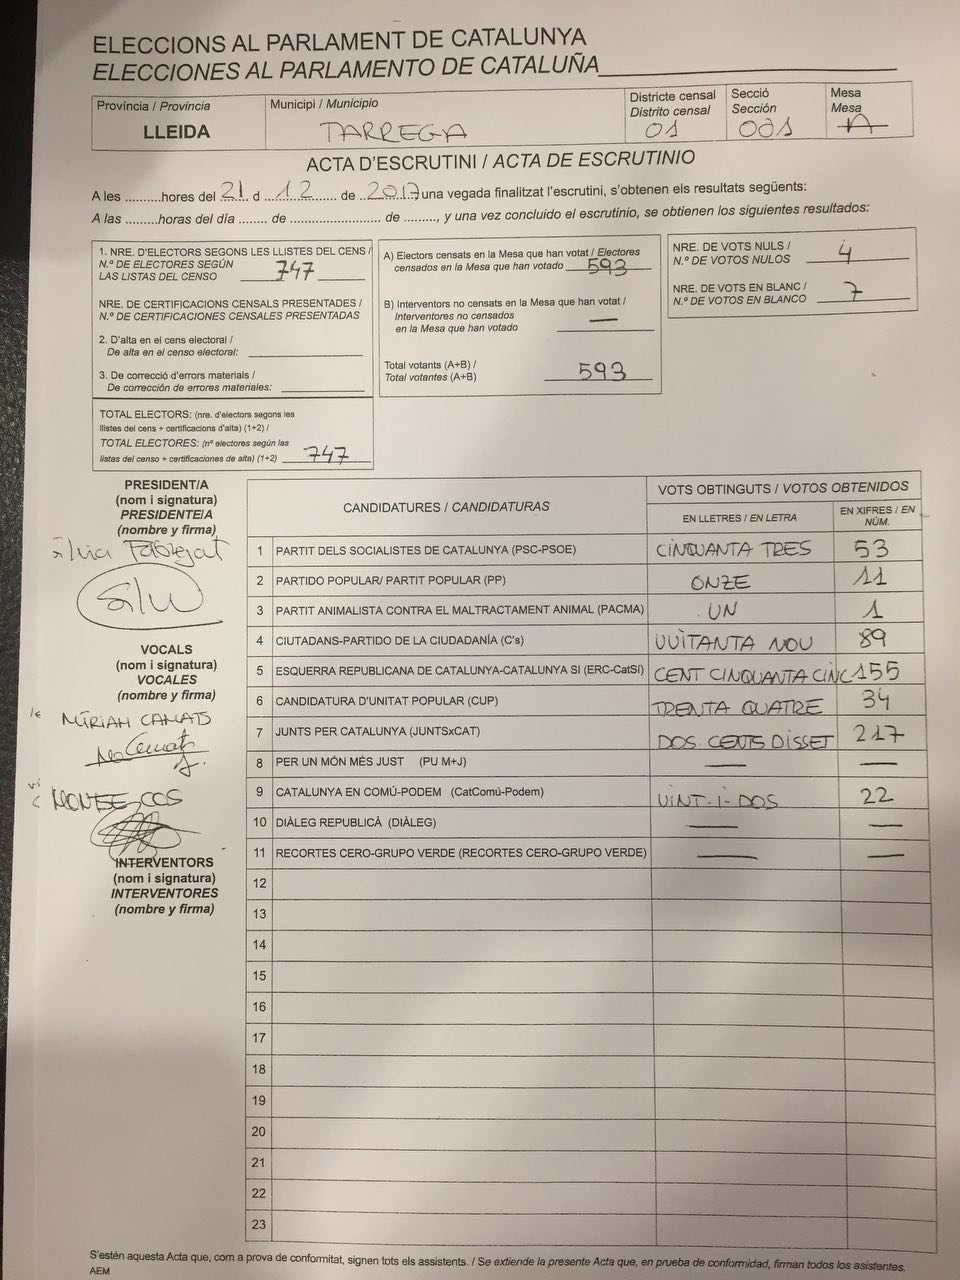 ELECCIONS AL PARLAMENT DE CATALUNYA
ELECCIONES AL PARLAMENTO DE CATALUÑA
Província / Provincia
LLEIDA
Municipi / Municipio
TARREGA
Districte censal
Distrito censal
01
Secció
Sección
001
Mesa
Mesa
A
ACTA D'ESCRUTINI / ACTA DE ESCRUTINIO
A les .........hores del 21 d 12 de 2017 una vegada finalitzat l'escrutini, s'obtenen els resultats següents:
A las .........horas del día ........ de ........................ de ........, y una vez concluido el escrutinio, se obtienen los siguientes resultados:
1. NRE. D'ELECTORS SEGONS LES LLISTES DEL CENS /
N.º DE ELECTORES SEGÚN
LAS LISTAS DEL CENSO 747
NRE. DE CERTIFICACIONS CENSALS PRESENTADES /
N.º DE CERTIFICACIONES CENSALES PRESENTADAS
2. D'alta en el cens electoral /
De alta en el censo electoral:
3. De correcció d'errors materials /
De corrección de errores materiales:
TOTAL ELECTORS: (nre. d'electors segons les
llistes del cens + certificacions d'alta) (1+2) /
TOTAL ELECTORES: (nº electores según las
listas del censo + certificaciones de alta) (1+2) 747
A) Electors censats en la Mesa que han votat / Electores
censados en la Mesa que han votado 593
B) Interventors no censats en la Mesa que han votat /
Interventores no censados
en la Mesa que han votado —
Total votants (A+B) /
Total votantes (A+B) 593
NRE. DE VOTS NULS /
N.º DE VOTOS NULOS 4
NRE. DE VOTS EN BLANC /
N.º DE VOTOS EN BLANCO 7
PRESIDENT/A
(nom i signatura)
PRESIDENTE/A
(nombre y firma)
VOCALS
(nom i signatura)
VOCALES
(nombre y firma)
MIRIAM CAMATS
MONTSE COS
INTERVENTORS
(nom i signatura)
INTERVENTORES
(nombre y firma)
CANDIDATURES / CANDIDATURAS
VOTS OBTINGUTS / VOTOS OBTENIDOS
EN LLETRES / EN LETRA
EN XIFRES / EN
NÚM.
1 PARTIT DELS SOCIALISTES DE CATALUNYA (PSC-PSOE) CINQUANTA TRES 53
2 PARTIDO POPULAR/ PARTIT POPULAR (PP) ONZE 11
3 PARTIT ANIMALISTA CONTRA EL MALTRACTAMENT ANIMAL (PACMA) UN 1
4 CIUTADANS-PARTIDO DE LA CIUDADANÍA (C's) VUITANTA NOU 89
5 ESQUERRA REPUBLICANA DE CATALUNYA-CATALUNYA SI (ERC-CatSí) CENT CINQUANTA CINC 155
6 CANDIDATURA D'UNITAT POPULAR (CUP) TRENTA QUATRE 34
7 JUNTS PER CATALUNYA (JUNTSxCAT) DOS CENTS DISSET 217
8 PER UN MÓN MÉS JUST (PU M+J) — —
9 CATALUNYA EN COMÚ-PODEM (CatComú-Podem) VINT-I-DOS 22
10 DIÀLEG REPUBLICÀ (DIÀLEG) — —
11 RECORTES CERO-GRUPO VERDE (RECORTES CERO-GRUPO VERDE) — —
12
13
14
15
16
17
18
19
20
21
22
23
S'estén aquesta Acta que, com a prova de conformitat, signen tots els assistents. / Se extiende la presente Acta que, en prueba de conformidad, firman todos los asistentes.
AEM